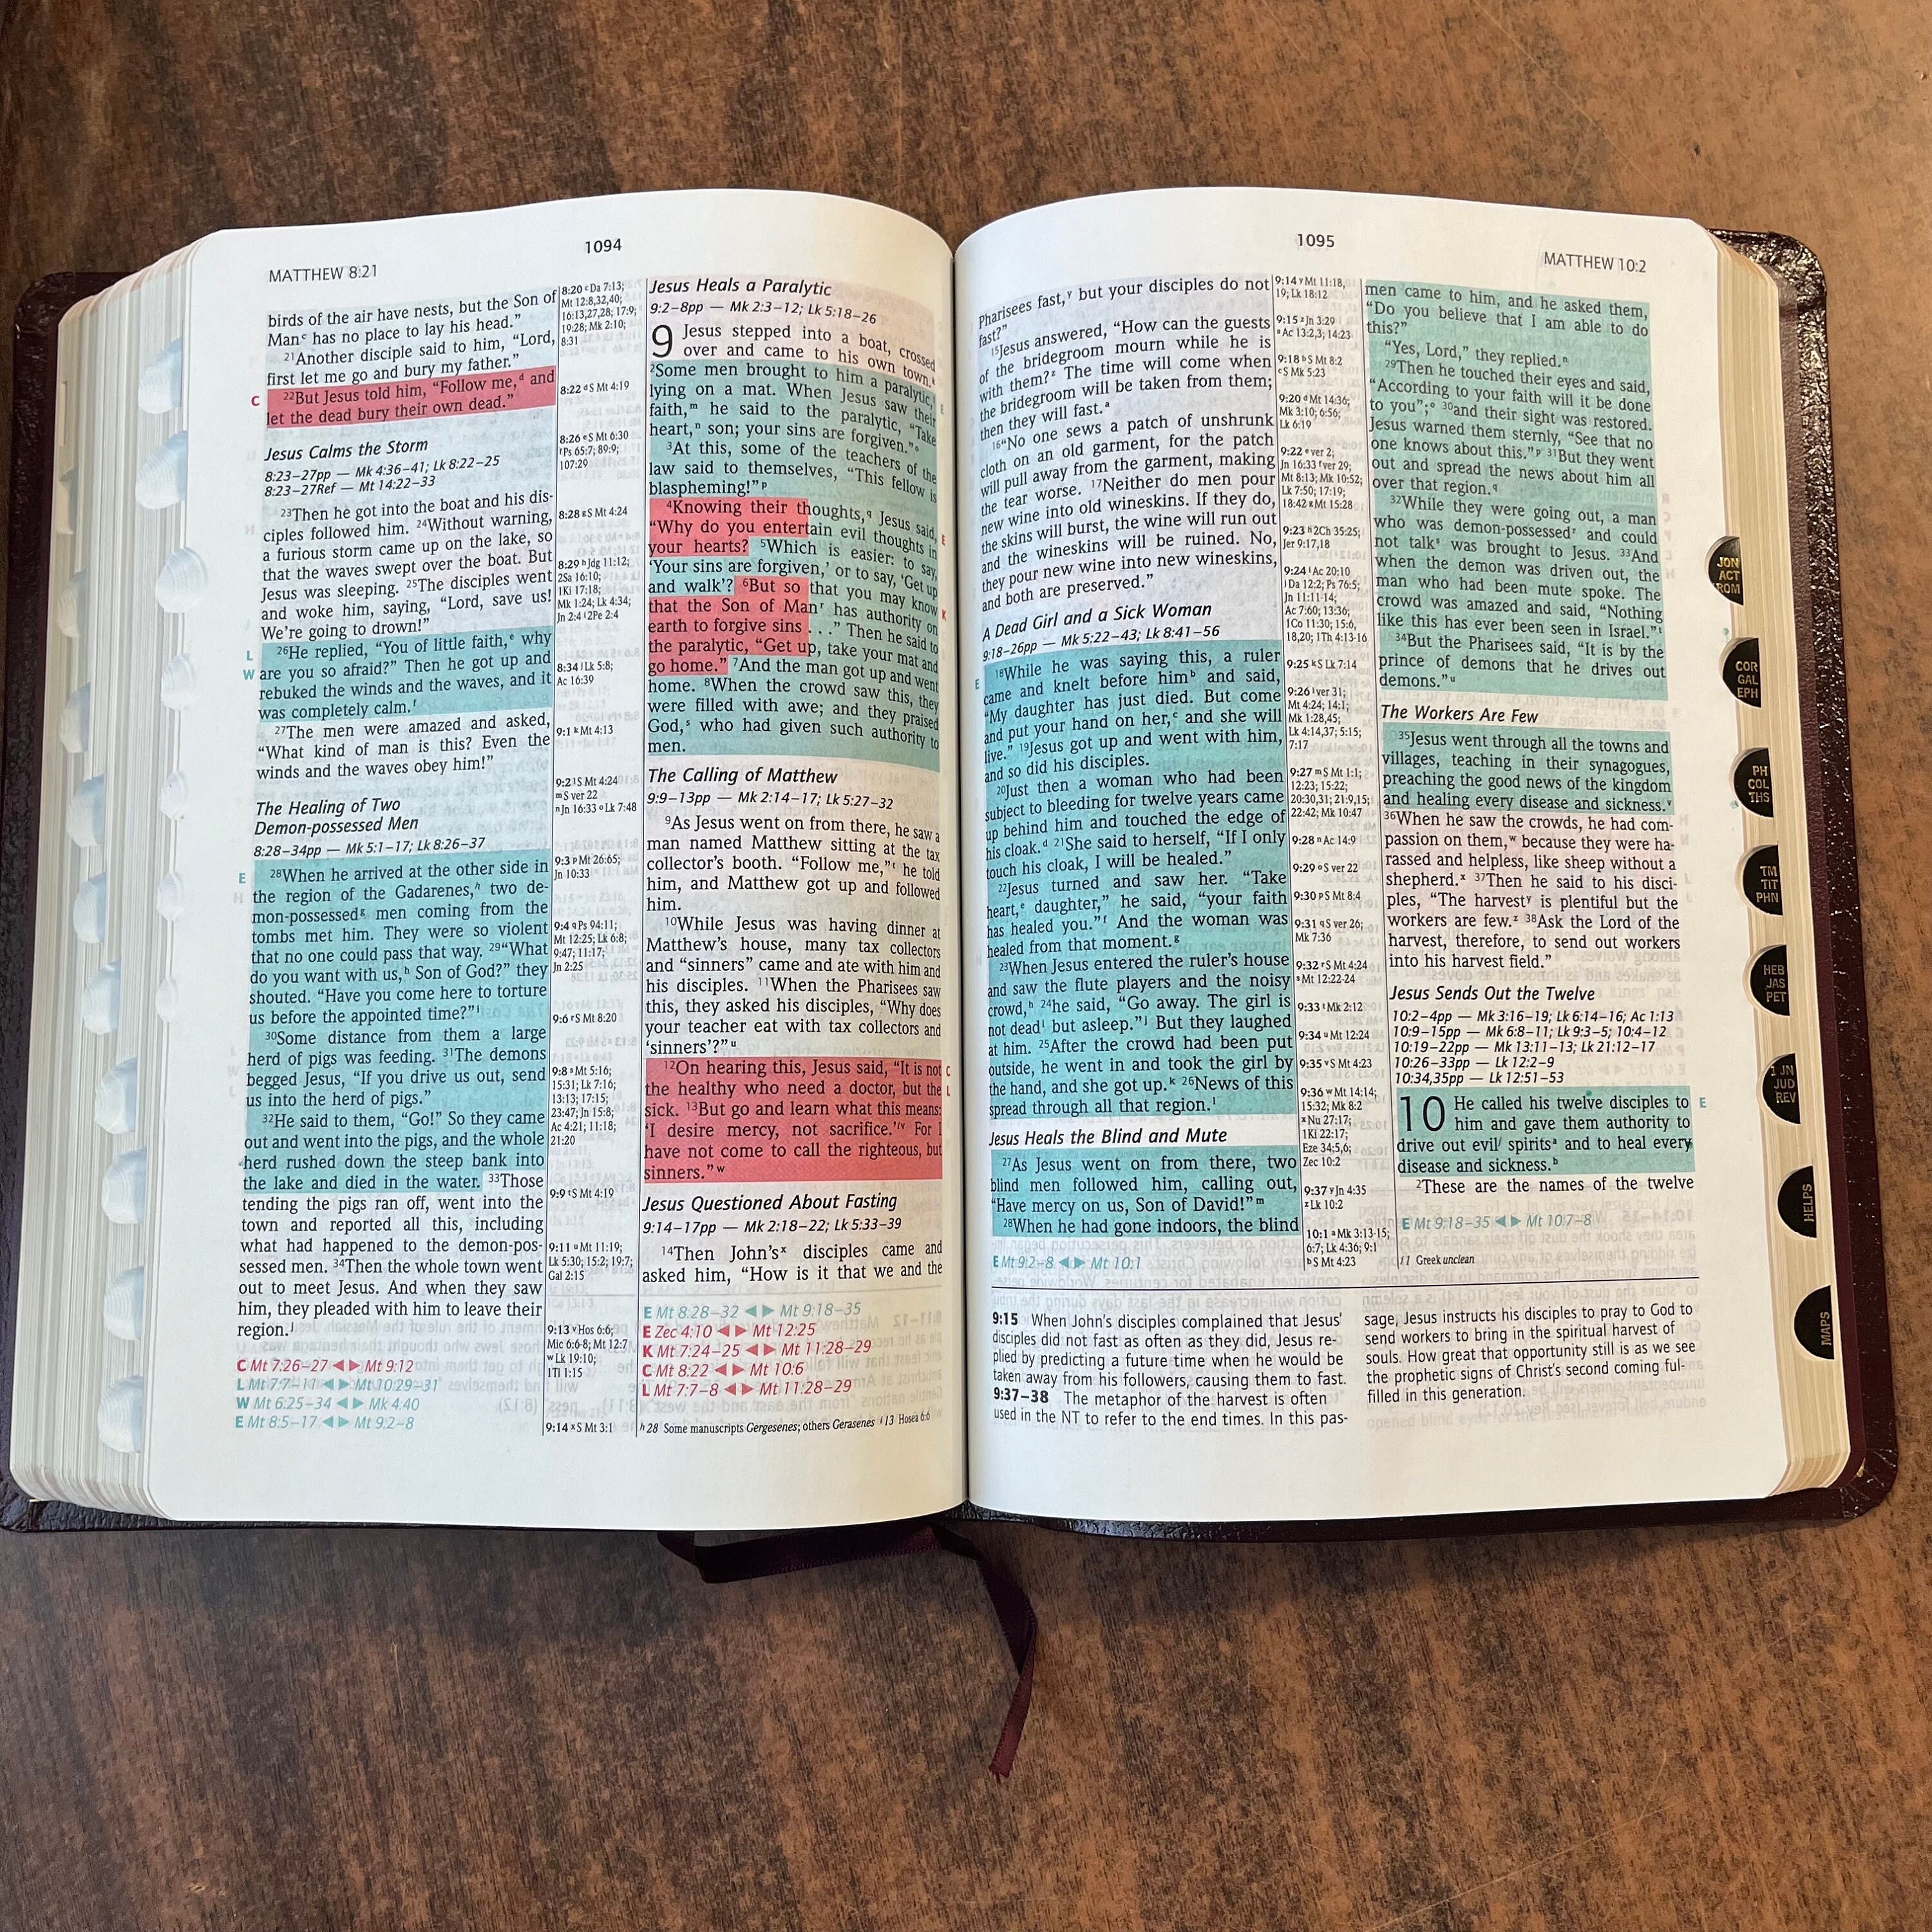 1094
MATTHEW 8:21
birds of the air have nests, but the Son of
Manᶜ has no place to lay his head.”
²¹Another disciple said to him, “Lord,
first let me go and bury my father.”
C
²²But Jesus told him, “Follow me,ᵈ and
let the dead bury their own dead.”
Jesus Calms the Storm
8:23–27pp — Mk 4:36–41; Lk 8:22–25
8:23–27Ref — Mt 14:22–33
²³Then he got into the boat and his dis-
ciples followed him. ²⁴Without warning,
a furious storm came up on the lake, so
that the waves swept over the boat. But
Jesus was sleeping. ²⁵The disciples went
and woke him, saying, “Lord, save us!
We’re going to drown!”
L
W
²⁶He replied, “You of little faith,ᵉ why
are you so afraid?” Then he got up and
rebuked the winds and the waves, and it
was completely calm.ᶠ
²⁷The men were amazed and asked,
“What kind of man is this? Even the
winds and the waves obey him!”
The Healing of Two
Demon-possessed Men
8:28–34pp — Mk 5:1–17; Lk 8:26–37
E
²⁸When he arrived at the other side in
the region of the Gadarenes,ʰ two de-
mon-possessedᵍ men coming from the
tombs met him. They were so violent
that no one could pass that way. ²⁹“What
do you want with us,ʰ Son of God?” they
shouted. “Have you come here to torture
us before the appointed time?”ⁱ
³⁰Some distance from them a large
herd of pigs was feeding. ³¹The demons
begged Jesus, “If you drive us out, send
us into the herd of pigs.”
³²He said to them, “Go!” So they came
out and went into the pigs, and the whole
herd rushed down the steep bank into
the lake and died in the water. ³³Those
tending the pigs ran off, went into the
town and reported all this, including
what had happened to the demon-pos-
sessed men. ³⁴Then the whole town went
out to meet Jesus. And when they saw
him, they pleaded with him to leave their
region.ʲ
C Mt 7:26–27 ◀ ▶ Mt 9:12
L Mt 7:7–11 ◀ ▶ Mt 10:29–31
W Mt 6:25–34 ◀ ▶ Mk 4:40
E Mt 8:5–17 ◀ ▶ Mt 9:2–8
8:20 ᶜDa 7:13;
Mt 12:8,32,40;
16:13,27,28; 17:9;
19:28; Mk 2:10;
8:31
8:22 ᵈS Mt 4:19
8:26 ᵉS Mt 6:30
ᶠPs 65:7; 89:9;
107:29
8:28 ᵍS Mt 4:24
8:29 ʰJdg 11:12;
2Sa 16:10;
1Ki 17:18;
Mk 1:24; Lk 4:34;
Jn 2:4 ⁱ2Pe 2:4
8:34 ʲLk 5:8;
Ac 16:39
9:1 ᵏMt 4:13
9:2 ˡS Mt 4:24
ᵐS ver 22
ⁿJn 16:33 ᵒLk 7:48
9:3 ᵖMt 26:65;
Jn 10:33
9:4 qPs 94:11;
Mt 12:25; Lk 6:8;
9:47; 11:17;
Jn 2:25
9:6 ʳS Mt 8:20
9:8 ˢMt 5:16;
15:31; Lk 7:16;
13:13; 17:15;
23:47; Jn 15:8;
Ac 4:21; 11:18;
21:20
9:9 ᵗS Mt 4:19
9:11 ᵘMt 11:19;
Lk 5:30; 15:2; 19:7;
Gal 2:15
9:13 ᵛHos 6:6;
Mic 6:6-8; Mt 12:7
ʷLk 19:10;
1Ti 1:15
9:14 ˣS Mt 3:1
Jesus Heals a Paralytic
9:2–8pp — Mk 2:3–12; Lk 5:18–26
9 Jesus stepped into a boat, crossed
over and came to his own town.ᵏ
²Some men brought to him a paralytic,ˡ
lying on a mat. When Jesus saw their
faith,ᵐ he said to the paralytic, “Take
heart,ⁿ son; your sins are forgiven.”ᵒ
E
³At this, some of the teachers of the
law said to themselves, “This fellow is
blaspheming!”ᵖ
⁴Knowing their thoughts,q Jesus said,
“Why do you entertain evil thoughts in
your hearts? ⁵Which is easier: to say,
‘Your sins are forgiven,’ or to say, ‘Get up
and walk’? ⁶But so that you may know
that the Son of Manʳ has authority on
earth to forgive sins . . .” Then he said to
the paralytic, “Get up, take your mat and
go home.” ⁷And the man got up and went
home. ⁸When the crowd saw this, they
were filled with awe; and they praised
God,ˢ who had given such authority to
men.
E
K
The Calling of Matthew
9:9–13pp — Mk 2:14–17; Lk 5:27–32
⁹As Jesus went on from there, he saw a
man named Matthew sitting at the tax
collector’s booth. “Follow me,”ᵗ he told
him, and Matthew got up and followed
him.
¹⁰While Jesus was having dinner at
Matthew’s house, many tax collectors
and “sinners” came and ate with him and
his disciples. ¹¹When the Pharisees saw
this, they asked his disciples, “Why does
your teacher eat with tax collectors and
‘sinners’?”ᵘ
¹²On hearing this, Jesus said, “It is not
the healthy who need a doctor, but the
sick. ¹³But go and learn what this means:
‘I desire mercy, not sacrifice.’ⁱᵛ For I
have not come to call the righteous, but
sinners.”ʷ
C
L
Jesus Questioned About Fasting
9:14–17pp — Mk 2:18–22; Lk 5:33–39
¹⁴Then John’sˣ disciples came and
asked him, “How is it that we and the
E Mt 8:28–32 ◀ ▶ Mt 9:18–35
E Zec 4:10 ◀ ▶ Mt 12:25
K Mt 7:24–25 ◀ ▶ Mt 11:28–29
C Mt 8:22 ◀ ▶ Mt 10:6
L Mt 7:7–8 ◀ ▶ Mt 11:28–29
ʰ28 Some manuscripts Gergesenes; others Gerasenes ⁱ13 Hosea 6:6
1095
MATTHEW 10:2
Pharisees fast,ʸ but your disciples do not
fast?”
¹⁵Jesus answered, “How can the guests
of the bridegroom mourn while he is
with them?ᶻ The time will come when
the bridegroom will be taken from them;
then they will fast.ᵃ
¹⁶“No one sews a patch of unshrunk
cloth on an old garment, for the patch
will pull away from the garment, making
the tear worse. ¹⁷Neither do men pour
new wine into old wineskins. If they do,
the skins will burst, the wine will run out
and the wineskins will be ruined. No,
they pour new wine into new wineskins,
and both are preserved.”
A Dead Girl and a Sick Woman
9:18–26pp — Mk 5:22–43; Lk 8:41–56
E
¹⁸While he was saying this, a ruler
came and knelt before himᵇ and said,
“My daughter has just died. But come
and put your hand on her,ᶜ and she will
live.” ¹⁹Jesus got up and went with him,
and so did his disciples.
²⁰Just then a woman who had been
subject to bleeding for twelve years came
up behind him and touched the edge of
his cloak.ᵈ ²¹She said to herself, “If I only
touch his cloak, I will be healed.”
²²Jesus turned and saw her. “Take
heart,ᵉ daughter,” he said, “your faith
has healed you.”ᶠ And the woman was
healed from that moment.ᵍ
²³When Jesus entered the ruler’s house
and saw the flute players and the noisy
crowd,ʰ ²⁴he said, “Go away. The girl is
not deadⁱ but asleep.”ʲ But they laughed
at him. ²⁵After the crowd had been put
outside, he went in and took the girl by
the hand, and she got up.ᵏ ²⁶News of this
spread through all that region.ˡ
Jesus Heals the Blind and Mute
²⁷As Jesus went on from there, two
blind men followed him, calling out,
“Have mercy on us, Son of David!”ᵐ
²⁸When he had gone indoors, the blind
E Mt 9:2–8 ◀ ▶ Mt 10:1
9:14 ʸMt 11:18,
19; Lk 18:12
9:15 ᶻJn 3:29
ᵃAc 13:2,3; 14:23
9:18 ᵇS Mt 8:2
ᶜS Mk 5:23
9:20 ᵈMt 14:36;
Mk 3:10; 6:56;
Lk 6:19
9:22 ᵉver 2;
Jn 16:33 ᶠver 29;
Mt 8:13; Mk 10:52;
Lk 7:50; 17:19;
18:42 ᵍMt 15:28
9:23 ʰ2Ch 35:25;
Jer 9:17,18
9:24 ⁱAc 20:10
ʲDa 12:2; Ps 76:5;
Jn 11:11-14;
Ac 7:60; 13:36;
1Co 11:30; 15:6,
18,20; 1Th 4:13-16
9:25 ᵏS Lk 7:14
9:26 ˡver 31;
Mt 4:24; 14:1;
Mk 1:28,45;
Lk 4:14,37; 5:15;
7:17
9:27 ᵐS Mt 1:1;
12:23; 15:22;
20:30,31; 21:9,15;
22:42; Mk 10:47
9:28 ⁿAc 14:9
9:29 ᵒS ver 22
9:30 ᵖS Mt 8:4
9:31 qS ver 26;
Mk 7:36
9:32 ʳS Mt 4:24
ˢMt 12:22-24
9:33 ᵗMk 2:12
9:34 ᵘMt 12:24
9:35 ᵛS Mt 4:23
9:36 ʷMt 14:14;
15:32; Mk 8:2
ˣNu 27:17;
1Ki 22:17;
Eze 34:5,6;
Zec 10:2
9:37 ʸJn 4:35
ᶻLk 10:2
10:1 ᵃMk 3:13-15;
6:7; Lk 4:36; 9:1
ᵇS Mt 4:23
men came to him, and he asked them,
“Do you believe that I am able to do
this?”
“Yes, Lord,” they replied.ⁿ
²⁹Then he touched their eyes and said,
“According to your faith will it be done
to you”;ᵒ ³⁰and their sight was restored.
Jesus warned them sternly, “See that no
one knows about this.”ᵖ ³¹But they went
out and spread the news about him all
over that region.q
³²While they were going out, a man
who was demon-possessedʳ and could
not talkˢ was brought to Jesus. ³³And
when the demon was driven out, the
man who had been mute spoke. The
crowd was amazed and said, “Nothing
like this has ever been seen in Israel.”ᵗ
³⁴But the Pharisees said, “It is by the
prince of demons that he drives out
demons.”ᵘ
The Workers Are Few
³⁵Jesus went through all the towns and
villages, teaching in their synagogues,
preaching the good news of the kingdom
and healing every disease and sickness.ᵛ
³⁶When he saw the crowds, he had com-
passion on them,ʷ because they were ha-
rassed and helpless, like sheep without a
shepherd.ˣ ³⁷Then he said to his disci-
ples, “The harvestʸ is plentiful but the
workers are few.ᶻ ³⁸Ask the Lord of the
harvest, therefore, to send out workers
into his harvest field.”
Jesus Sends Out the Twelve
10:2–4pp — Mk 3:16–19; Lk 6:14–16; Ac 1:13
10:9–15pp — Mk 6:8–11; Lk 9:3–5; 10:4–12
10:19–22pp — Mk 13:11–13; Lk 21:12–17
10:26–33pp — Lk 12:2–9
10:34,35pp — Lk 12:51–53
10 He called his twelve disciples to
him and gave them authority to
drive out evilʲ spiritsᵃ and to heal every
disease and sickness.ᵇ
E
²These are the names of the twelve
E Mt 9:18–35 ◀ ▶ Mt 10:7–8
ʲ1 Greek unclean
9:15 When John’s disciples complained that Jesus’
disciples did not fast as often as they did, Jesus re-
plied by predicting a future time when he would be
taken away from his followers, causing them to fast.
9:37–38 The metaphor of the harvest is often
used in the NT to refer to the end times. In this pas-
sage, Jesus instructs his disciples to pray to God to
send workers to bring in the spiritual harvest of
souls. How great that opportunity still is as we see
the prophetic signs of Christ’s second coming ful-
filled in this generation.
JON
ACT
ROM
COR
GAL
EPH
PH
COL
THS
TM
TIT
PHN
HEB
JAS
PET
1 JN
JUD
REV
HELPS
MAPS